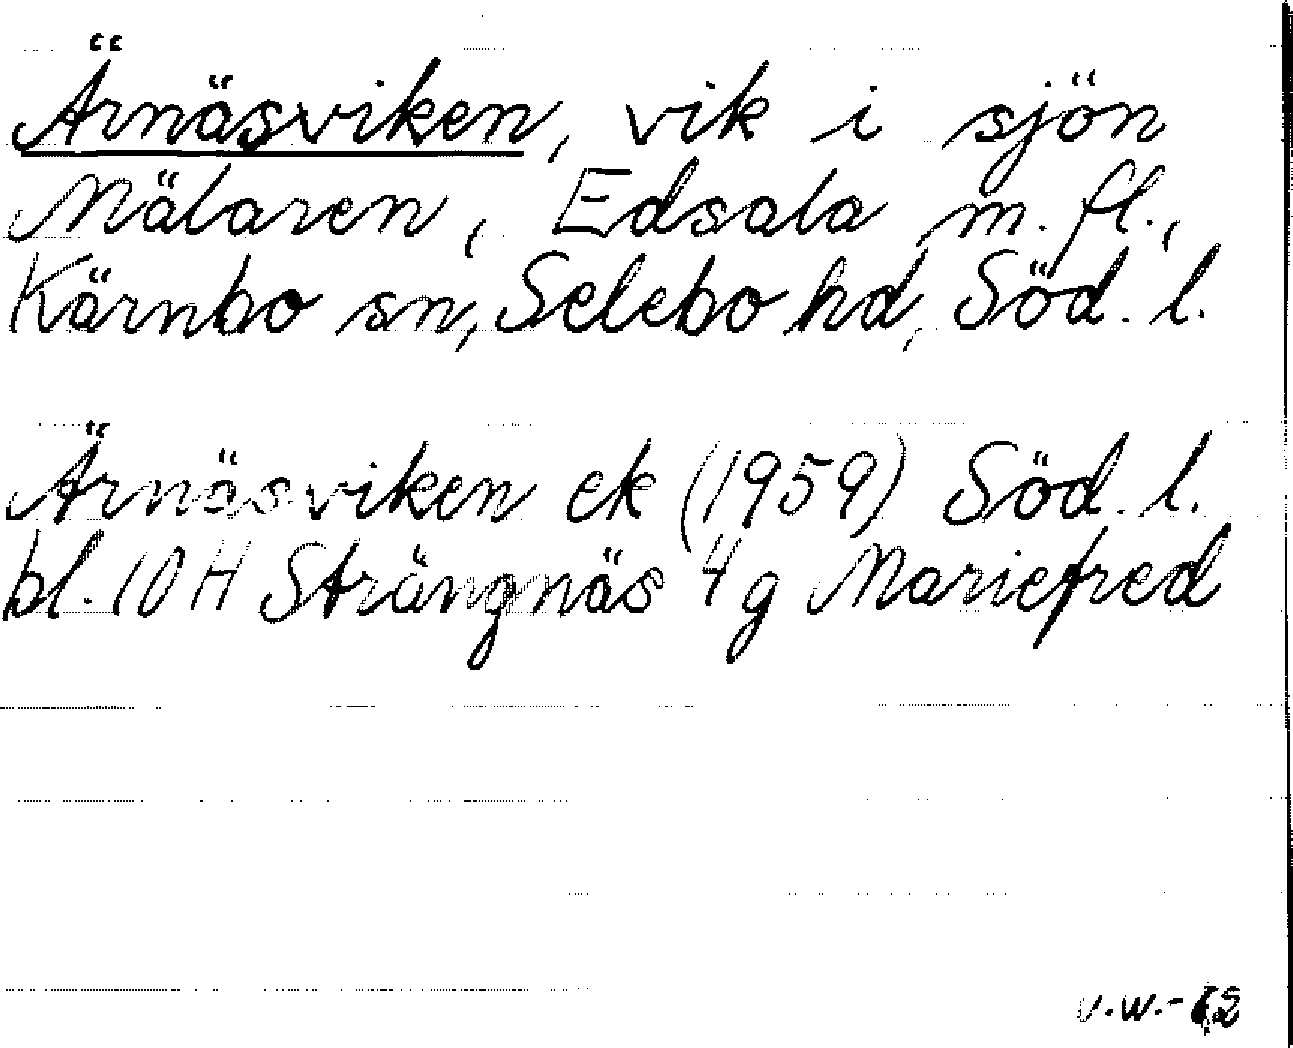 Ärnäsviken, vik i sjön
Mälaren, Edsala m.fl.,
Kärnbo sn, Selebo hd, Söd. l.
Ärnäsviken ek (1959) Söd. l.
bl. 10 H Strängnäs 4 g Mariefred
v.w.-